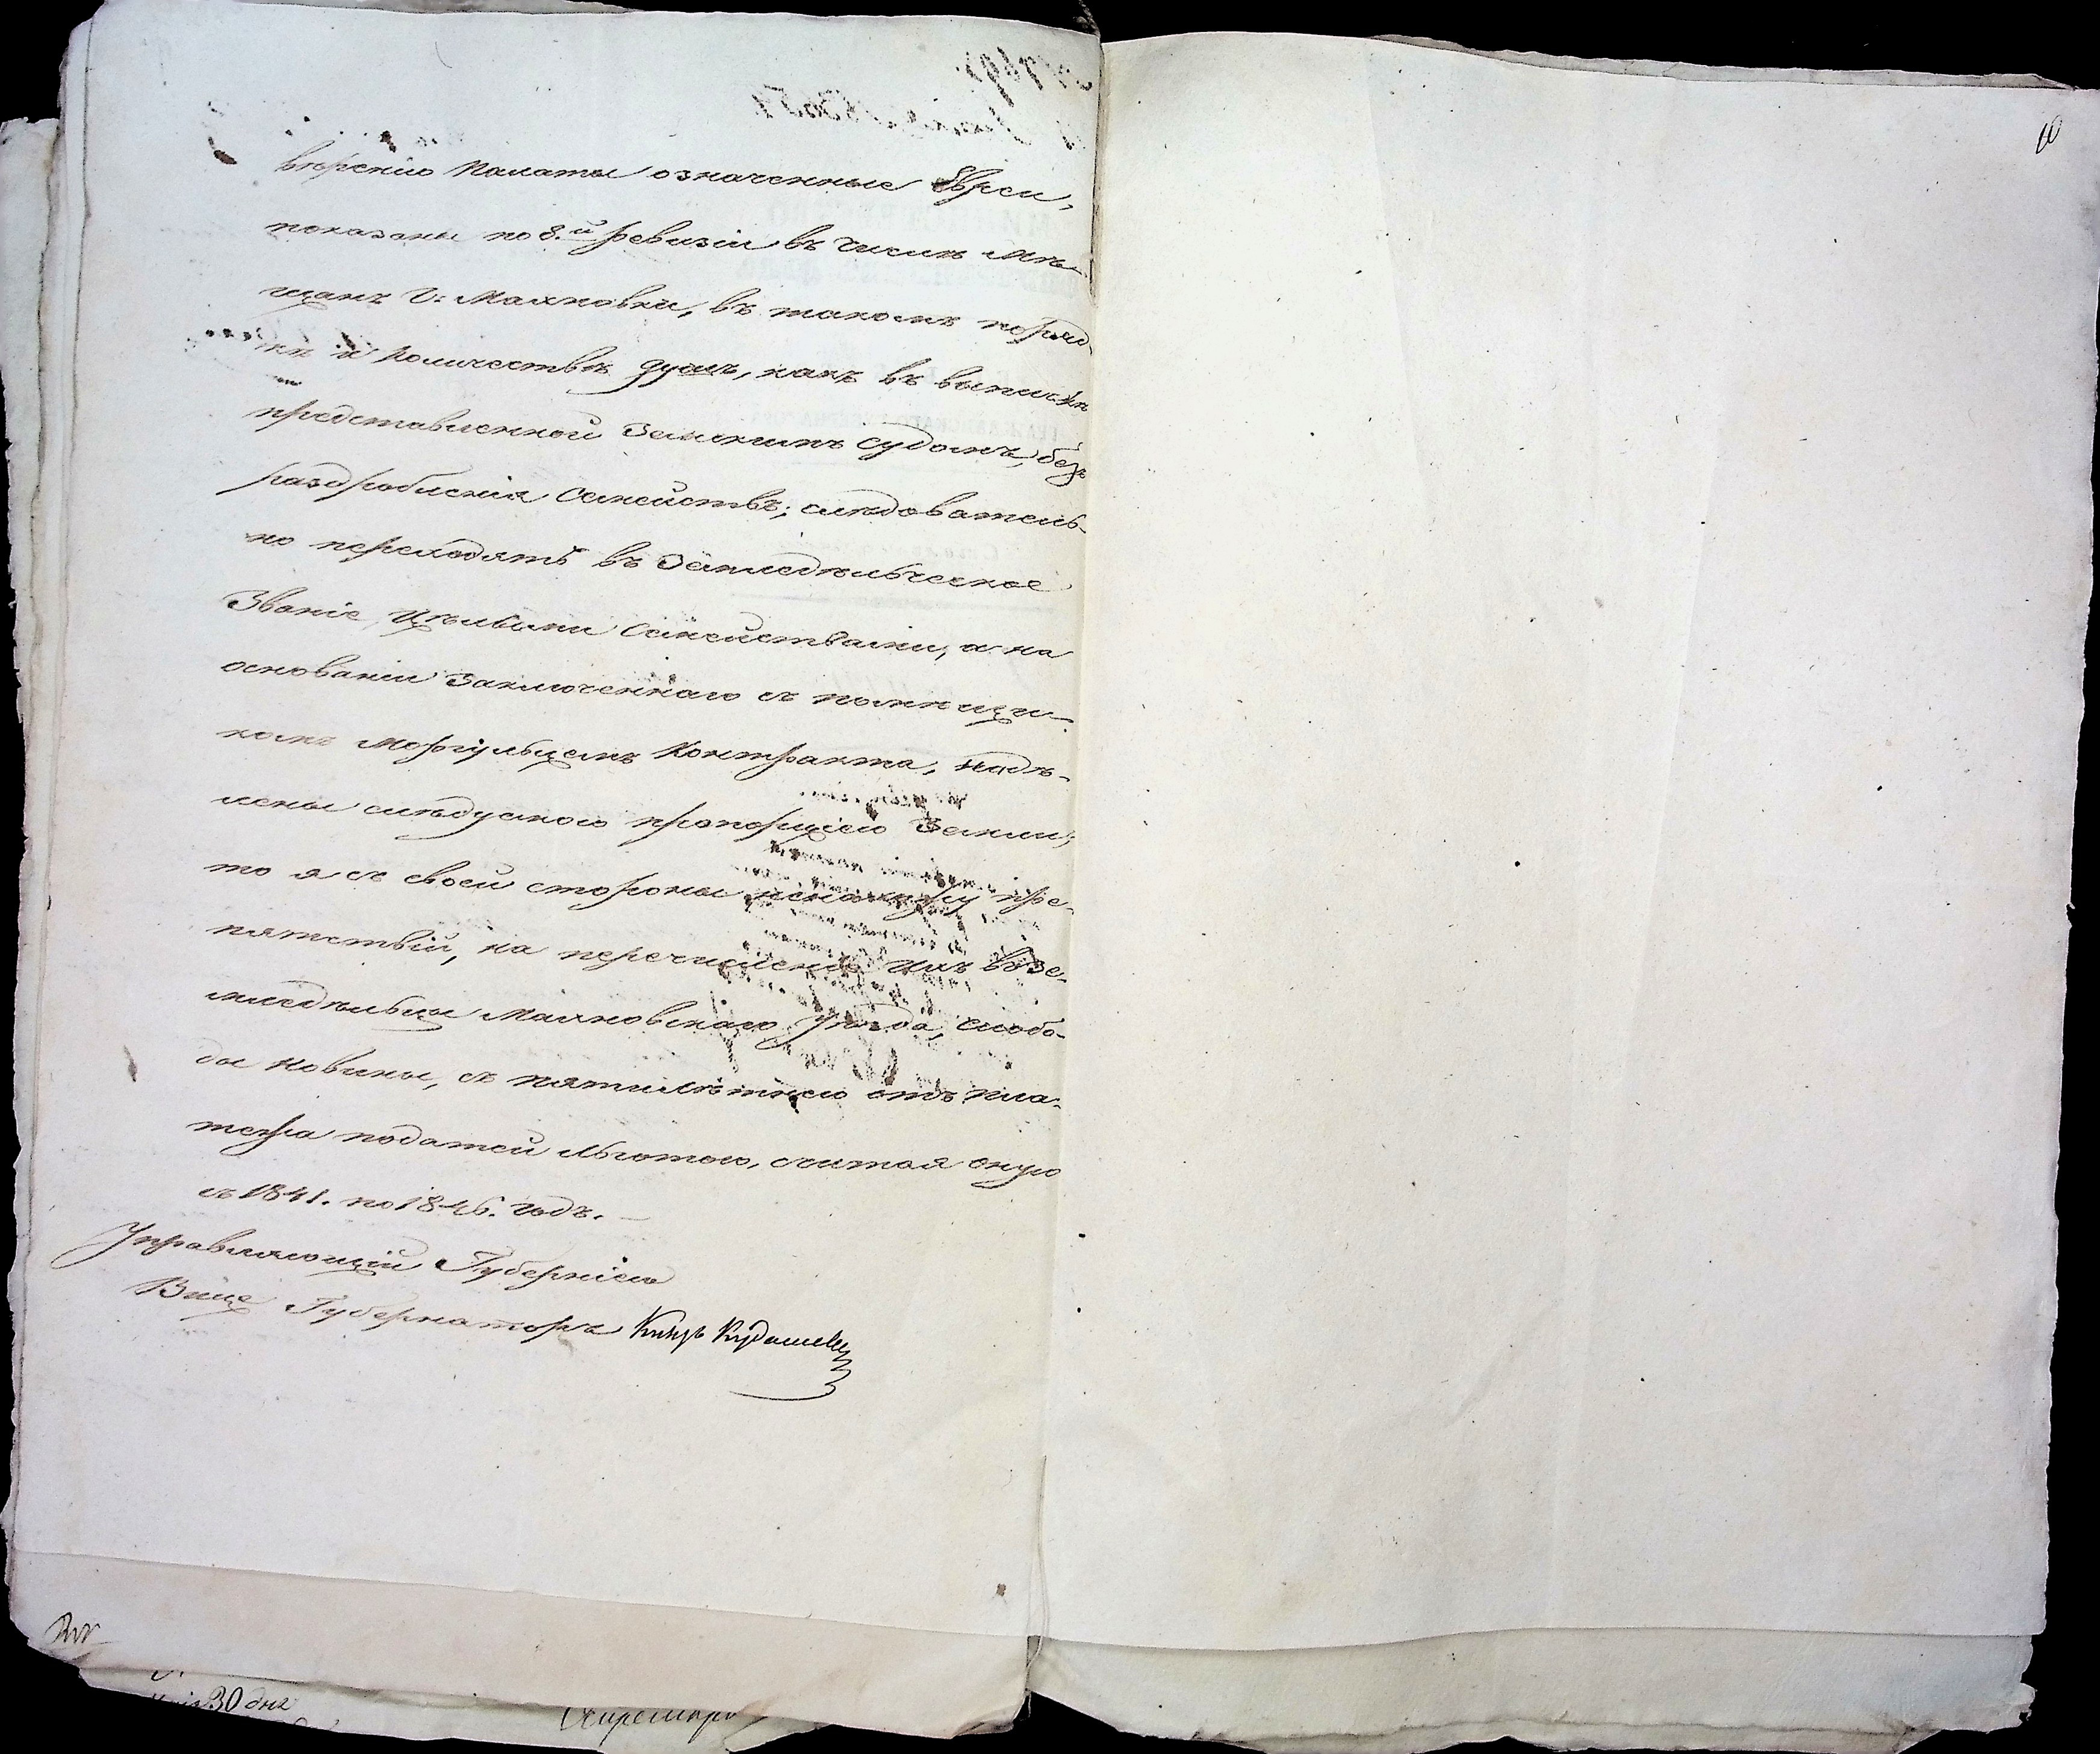 10
вѣренію Палаты означенные Евреи,
показаны по 8.й ревизіи въ числѣ мѣ-
щанъ г. Махновки, въ такомъ поряд-
кѣ и количествѣ душъ, какъ въ выпискѣ
представленной Земскимъ Судомъ, безъ
раздробленія Семействъ; слѣдователь-
но переходятъ въ Земледѣльческое
Званіе, цѣлыми Семействами, а на
основаніи Заключеннаго съ помѣщи-
комъ Моргульцемъ Контракта, надѣ-
лены слѣдуемою пропорціею Земли,
то я съ своей стороны ненахожу пре-
пятствій, на перечисленіе ихъ въ Зе-
мледѣльцы Махновскаго уѣзда, слобо-
ды Новины, съ пятилѣтнею отъ пла-
тежа податей льготою, считая оную
съ 1841. по 1846. годъ.
Управляющій Губерніею
Вице Губернаторъ Князь Кудашевъ
30 дня